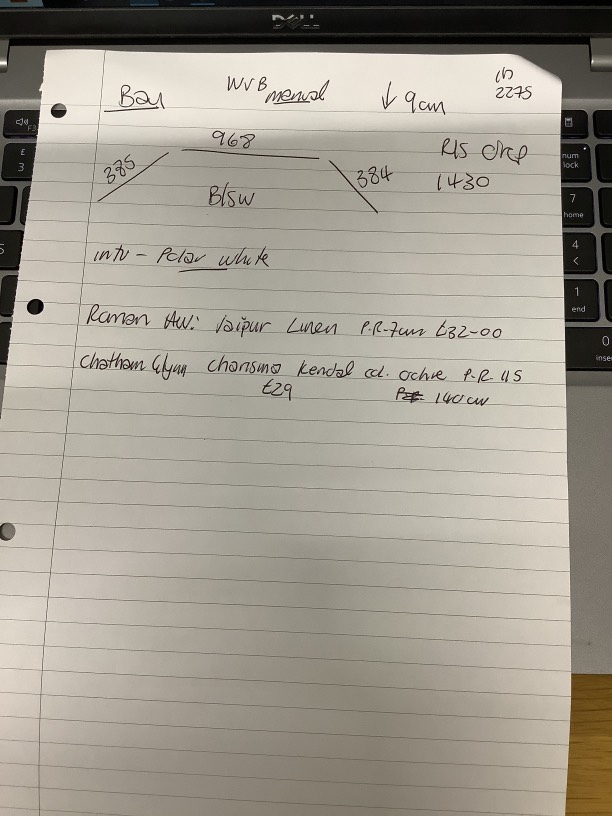 DELL
Bay WVB manual ↓ 9cm (1) 2275
385 968 384 R/S drop
B/SW 1430
intu - Polar white
Roman AW: Jaipur Linen P.R-7cm £32-00
Chatham Glyn Charisma Kendal col. ochre P.R 115
£29 140cm
F3
£
3
5
num
lock
7
home
4
<
1
end
0
inser